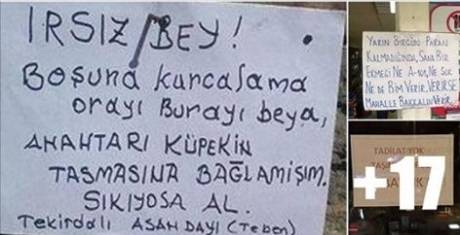 IRSIZ BEY!
Boşuna kurcalama
orayı burayı beya,
ANAHTARI KÜPEKİN
TASMASINA BAĞLAMIŞIM.
SIKIYOSA AL.
Tekirdalı ASAN DAYI (Teben)
YARIN BİRGÜN PARAN
KALMADIĞINDA, SANA BİR
EKMEĞİ NE A-101, NE ŞOK
NE DE BİM VERİR, VERİRSE
MAHALLE BAKKALIN VERİR.
TADİLAT YOK
+17